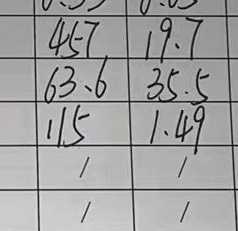 457 19.7
63.6 35.5
115 1.49
/ /
/ /